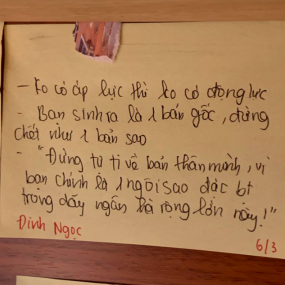 - Ko có áp lực thì ko có động lực
- Bạn sinh ra là 1 bản gốc, đừng
chết như 1 bản sao
- "Đừng tự ti về bản thân mình, vì
bạn chính là 1 ngôi sao đặc bt
trong dãy ngân hà rộng lớn này!"
Đinh Ngọc
6/3